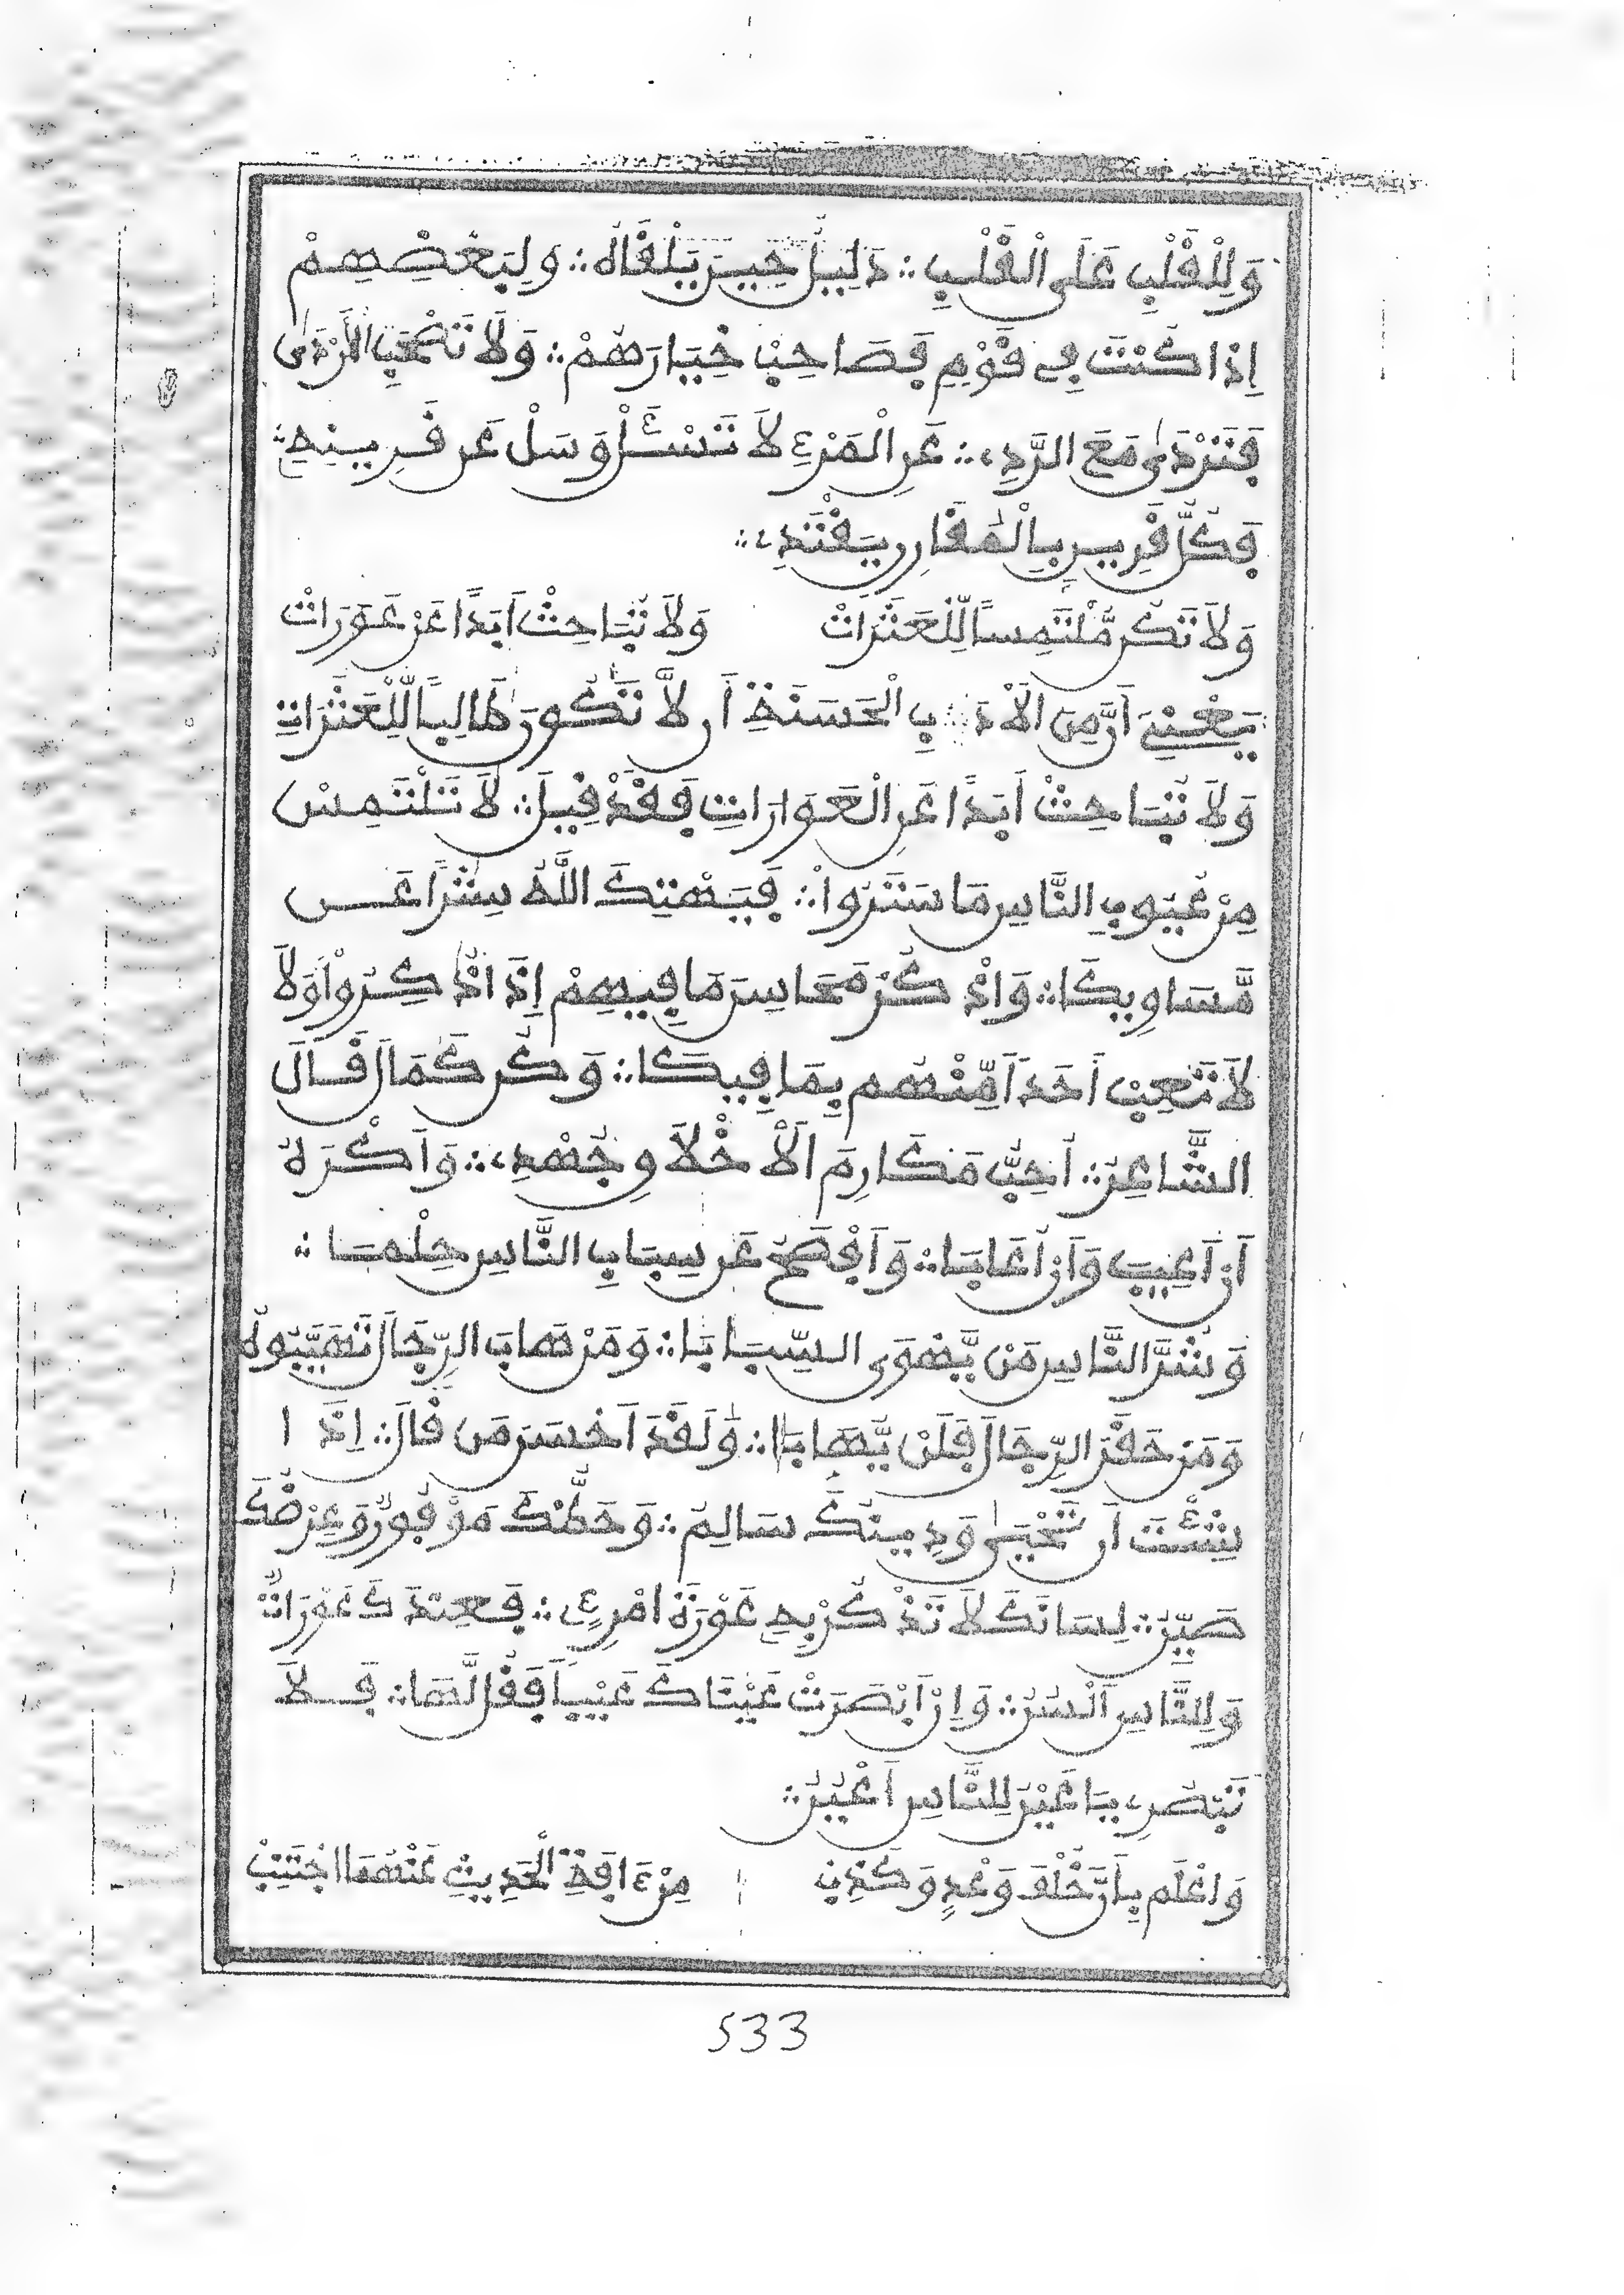 وَلِلْقَلْبِ عَلَى الْقَلْبِ ∴ دَلِيلٌ حِينَ يَلْقَاهُ ∴ وَلِبَعْضِهِمْ
إِذَا كُنْتَ فِي قَوْمٍ فَصَاحِبْ خِيَارَهُمْ ∴ وَلَا تَصْحَبِ الْأَرْدَى
فَتَرْدَى مَعَ الرَّدِي ∴ عَنِ الْمَرْءِ لَا تَسْئَلْ وَسَلْ عَن قَرِينِهِ ∴
فَكُلُّ قَرِينٍ بِالْمُقَارِنِ يَقْتَدِي ∴
وَلَا تَكُن مُّلْتَمِساً لِّلْعَثَرَاتْ وَلَا تُبَاحِثْ أَبَداً عَنْ عَوَرَاتْ
يَعْنِي أَنَّ مِنَ الْأَدَبِ الْحَسَنَةِ أَن لَّا تَكُونَ طَالِباً لِّلْعَثَرَاتِ
وَلَا تُبَاحِثْ أَبَداً عَنِ الْعَوَارَاتِ فَقَدْ قِيلَ ∴ لَا تَلْتَمِسْ
مِنْ عُيُوبِ النَّاسِ مَا سَتَرُوا ∴ فَيَهْتِكَ اللَّهُ سِتْراً عَن
مَّسَاوِيكَا ∴ وَاذْكُرْ مَحَاسِنَ مَا فِيهِمْ إِذَا ذُكِرُوا وَلَا
لَا تَعِبْ أَحَداً مِّنْهُم بِمَا فِيكَا ∴ وَكُن كَمَا قَالَ
الشَّاعِرُ ∴ أُحِبُّ مَكَارِمَ الْأَخْلَاقِ جُهْدِي ∴ وَأَكْرَهُ
أَنْ أَعِيبَ وَأَنْ أُعَابَا ∴ وَأَصْفَحُ عَن سِبَابِ النَّاسِ حِلْماً ∴
وَشَرُّ النَّاسِ مَن يَّهْوَى السِّبَابَا ∴ وَمَنْ هَابَ الرِّجَالَ تَهَيَّبُوهُ
وَمَنْ حَقَرَ الرِّجَالَ فَلَنْ يُّهَابَا ∴ وَلَقَدْ أَحْسَنَ مَن قَالَ ∴ إِذَا
شِئْتَ أَن تَحْيَى وَدِينُكَ سَالِمٌ ∴ وَحَظُّكَ مَوْفُورٌ وَعِرْضُكَ
صَيِّنٌ ∴ لِسَانَكَ لَا تَذْكُرْ بِهِ عَوْرَةَ امْرِئٍ ∴ فَعِنْدَكَ عَوْرَاتٌ
وَلِلنَّاسِ أَلْسُنُ ∴ وَإِنْ أَبْصَرَتْ عَيْنَاكَ عَيْباً فَقُل لَّهَا ∴ فَلَا
تُبْصِرِي يَا عَيْنُ لِلنَّاسِ أَعْيُنُ ∴
وَاعْلَم بِأَنَّ خُلْفَ وَعْدٍ وَكَذِبْ مِنْ ءَافَةِ الْحَدِيثِ عَنْهُمَا اجْتَنِبْ
533